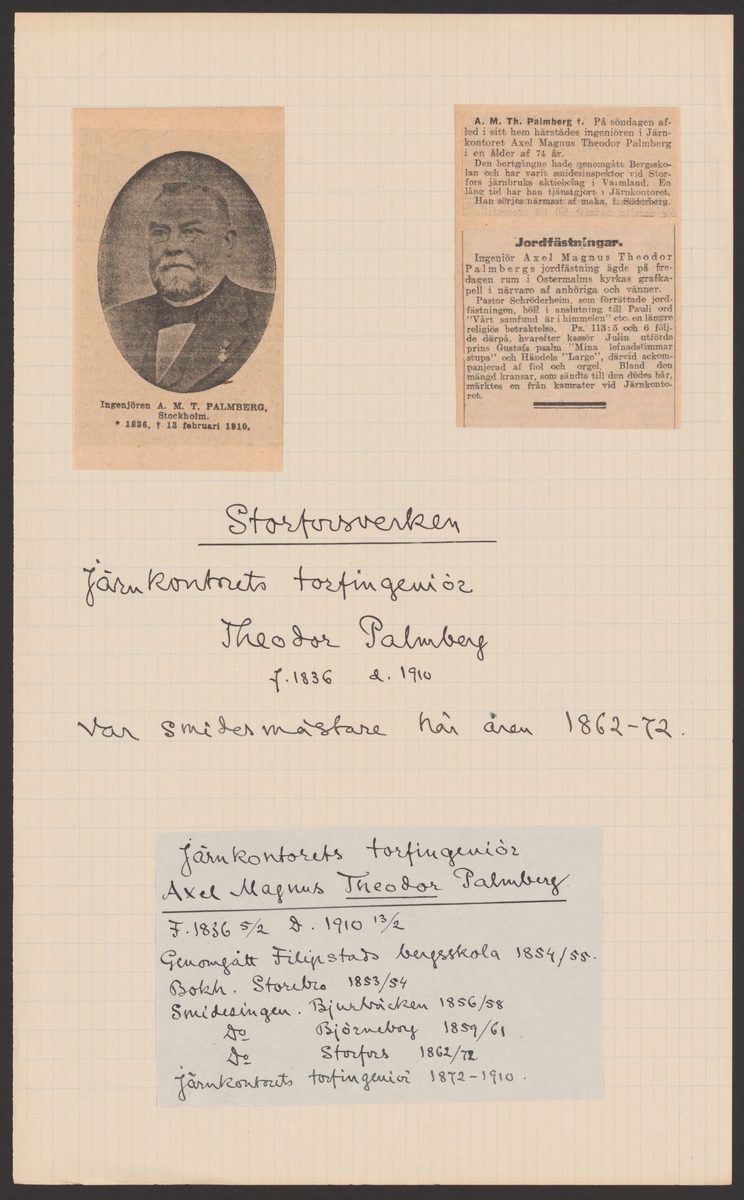 Ingenjören A. M. T. PALMBERG,
Stockholm.
* 1836, † 13 februari 1910.
A. M. Th. Palmberg †. På söndagen af-
led i sitt hem härstädes ingeniören i Järn-
kontoret Axel Magnus Theodor Palmberg
i en ålder af 74 år.
Den bortgångne hade genomgått Bergssko-
lan och har varit smidesinspektor vid Stor-
fors järnbruks aktiebolag i Värmland. En
lång tid har han tjänstgjort i Järnkontoret.
Han sörjes närmast af maka, f. Söderberg.
Jordfästningar.
Ingeniör Axel Magnus Theodor
Palmbergs jordfästning ägde på fre-
dagen rum i Östermalms kyrkas grafka-
pell i närvaro af anhöriga och vänner.
Pastor Schröderheim, som förrättade jord-
fästningen, höll i anslutning till Pauli ord
"Vårt samfund är i himmelen" etc. en längre
religiös betraktelse. Ps. 113: 5 och 6 följ-
de därpå, hvarefter kassör Julin utförde
prins Gustafs psalm "Mina lefnadstimmar
stupa" och Händels "Largo", därvid ackom-
panjerad af fiol och orgel. Bland den
mängd kransar, som sändts till den dödes bår,
märktes en från kamrater vid Järnkonto-
ret.
Storforsverken
Järnkontorets torfingeniör
Theodor Palmberg
f. 1836 d. 1910
var smidesmästare här åren 1862-72.
Järnkontorets torfingeniör
Axel Magnus Theodor Palmberg
F. 1836 5/2 D. 1910 13/2
Genomgått Filipstads bergsskola 1854/55.
Bokh. Storebro 1853/54
Smidesingen. Bjurbäcken 1856/58
Do Björneborg 1859/61
Do Storfors 1862/72
Järnkontorets torfingeniör 1872-1910.